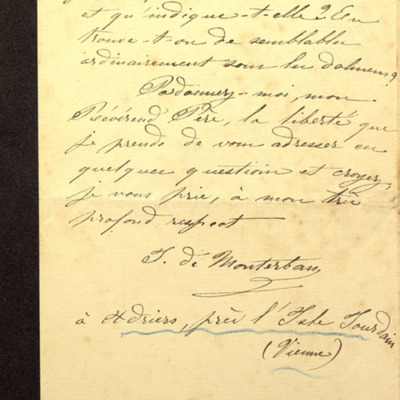 et qu'indique-t-elle? En
trouve-t-on de semblables
ordinairement sous les dolmens?
Pardonnez-moi, mon
Révérend Père, la liberté que
je prends de vous adresser ces
quelques questions et croyez,
je vous prie, à mon très
profond respect
de Monterban
à Adriers, près l'Isle Jourdain
(Vienne)